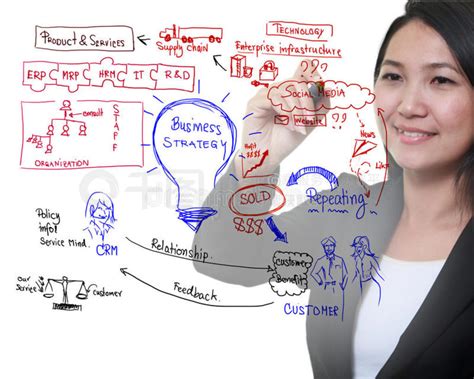 PRODUCT & SERVICES
Supply chain
TECHNOLOGY
Enterprise infrastructure
???
ERP
MRP
HRM
IT
R&D
SOCIAL MEDIA
consult
STAFF
ORGANIZATION
Business
STRATEGY
Website
???
News
Like
Profit
$$$
SOLD
$$$
Repeating
Policy
info!
Service Mind.
CRM
Relationship
Customer
Benefits
CUSTOMER
our
Service
customer
Feedback